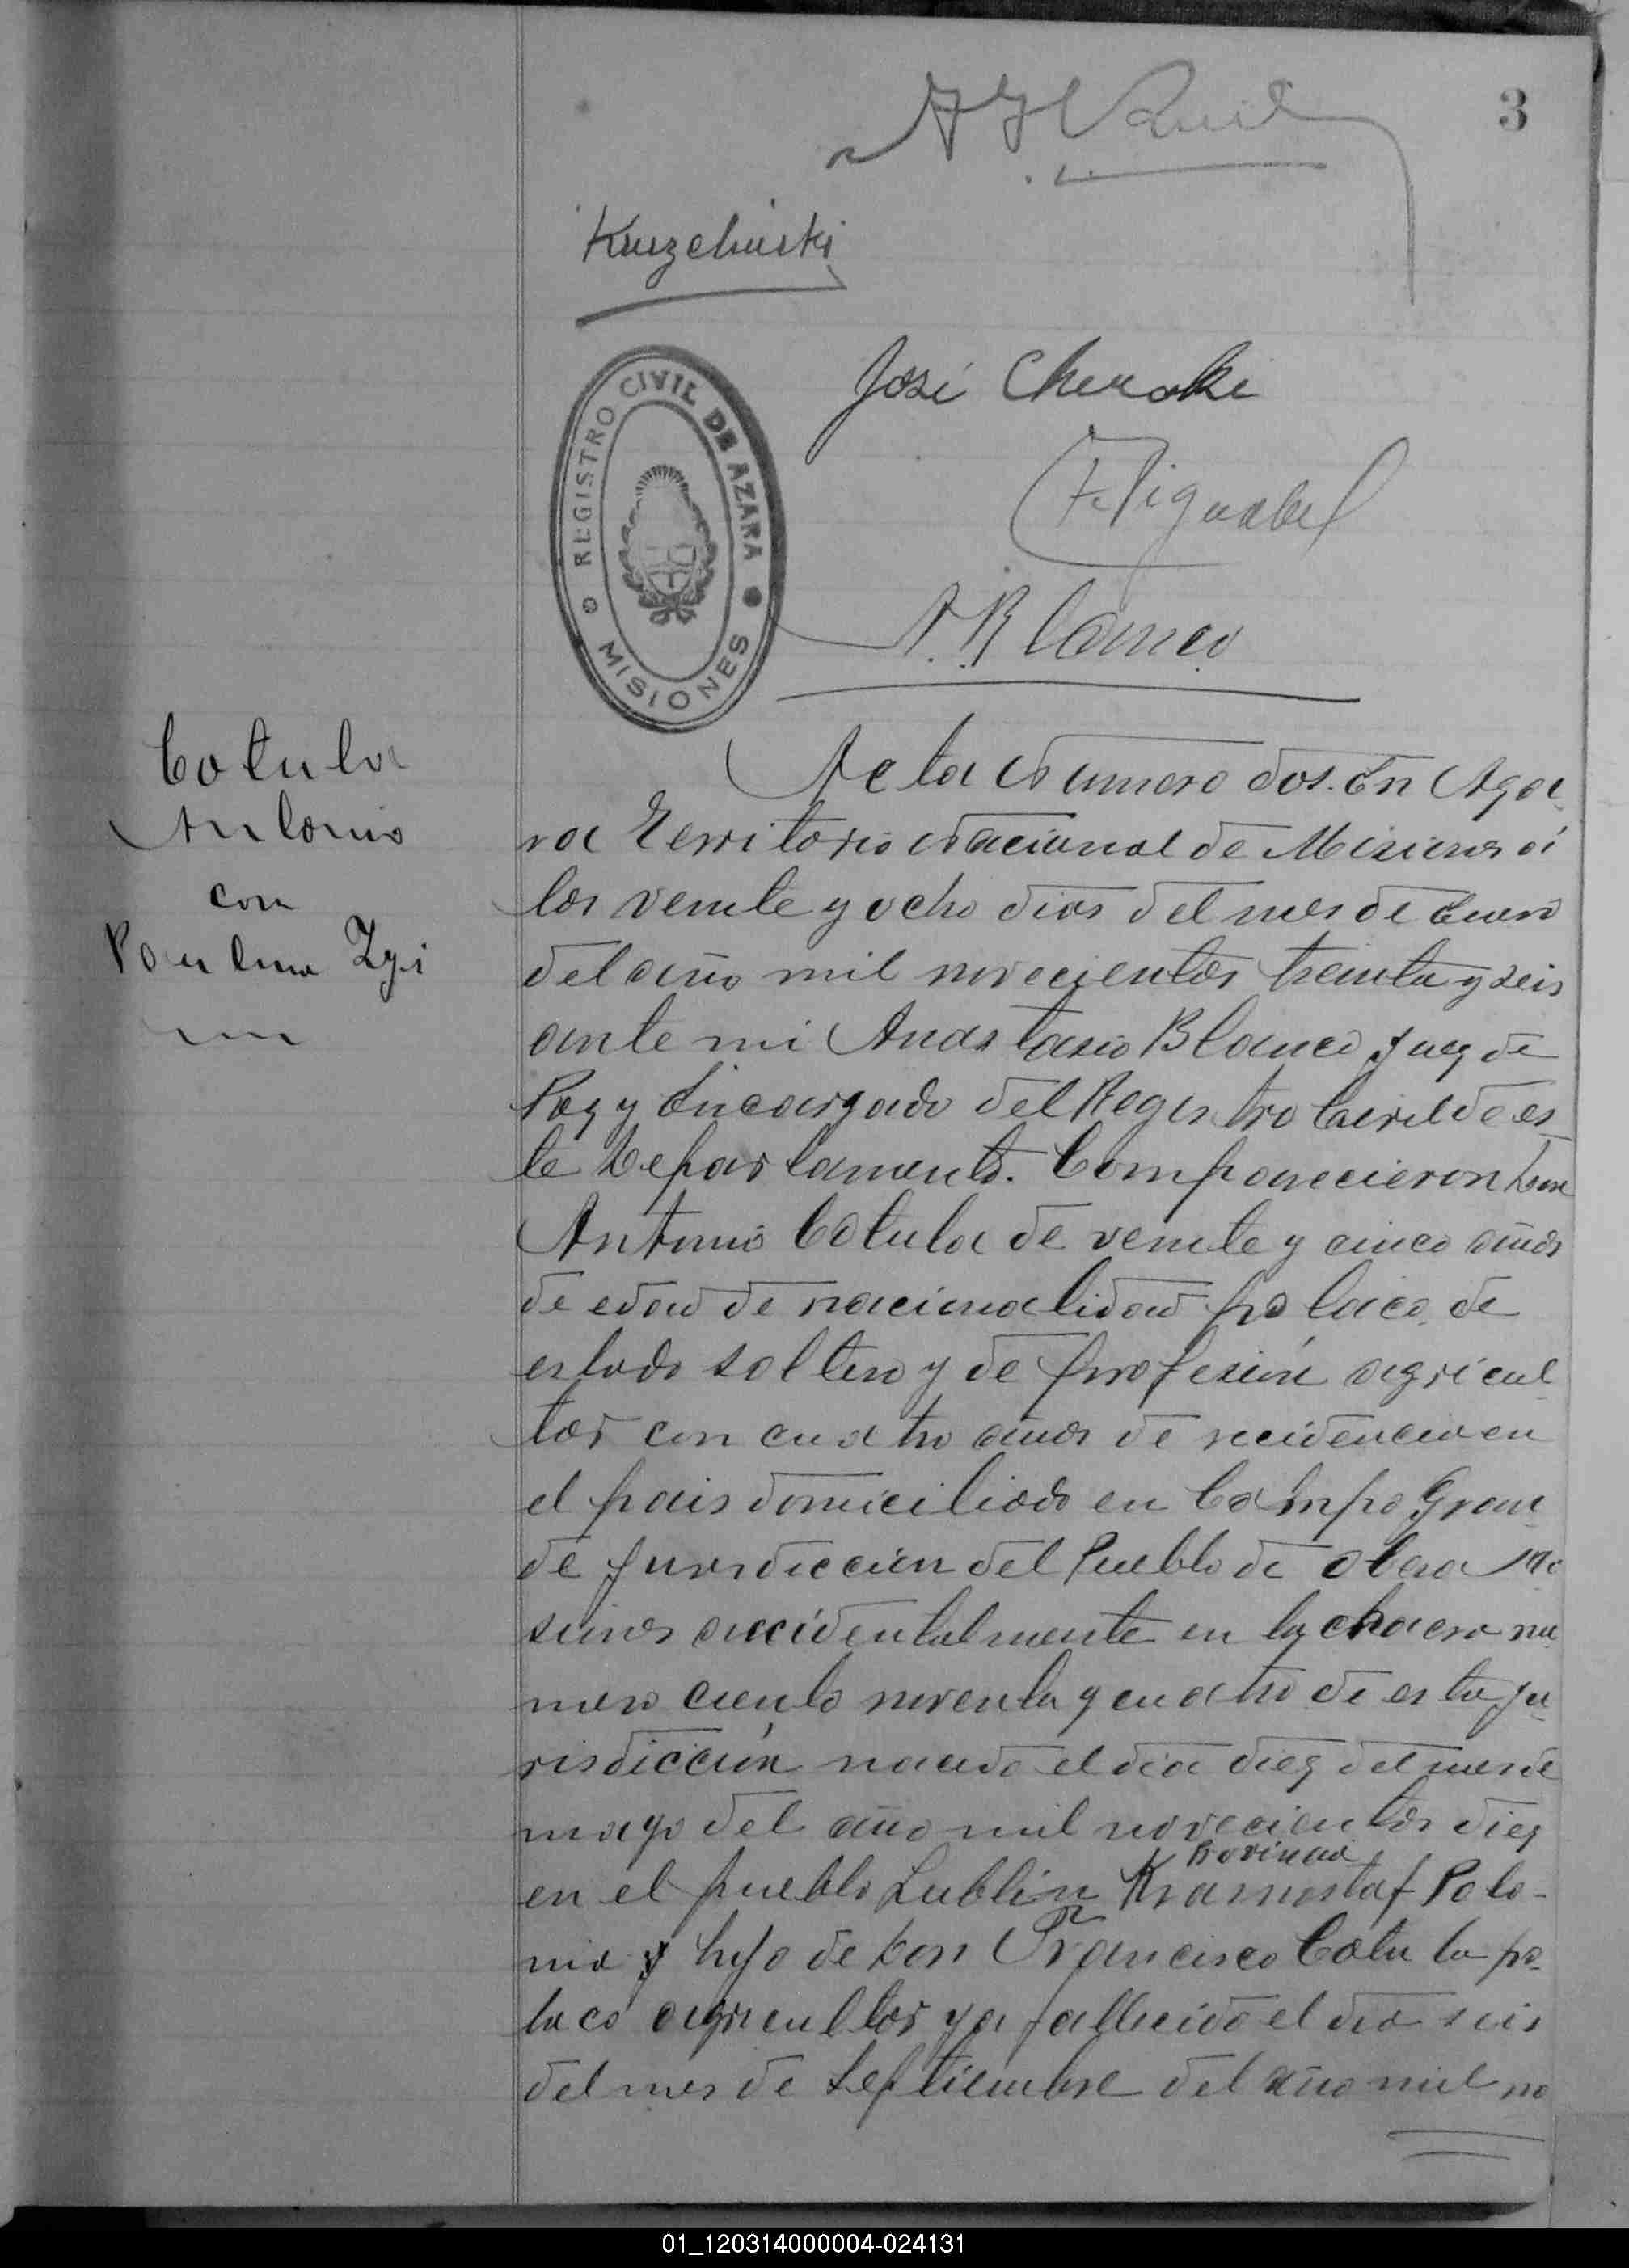 3
José Cheroki
A. Blanco
REGISTRO CIVIL DE AZARA
MISIONES
Cotula
Antonio
con
Paulina Zyi
Acta Numero dos. En Aza-
ra Territorio Nacional de Misiones á
los veinte y ocho dias del mes de Enero
del año mil novecientos treinta y seis
ante mi Anastasio Blanco Juez de
Paz y Encargado del Registro Civil de es_
te Departamento. Comparecieron Don
Antonio Cotula de veinte y cinco años
de edad de nacionalidad polaco de
estado soltero y de profesión agricul_
tor con cuatro años de recidencia en
el pais domiciliado en Campo Gran_
de Jurisdiccion del Pueblo de Obera Mi
siones accidentalmente en la chacra nu_
mero ciento noventa y cuatro de esta ju_
risdicción nacido el dia diez del mes de
mayo del año mil novecientos diez
Provincia
en el pueblo Lublin Krasnostaf Polo-
nia y hijo de Don Francisco Cotula po_
laco agricultor ya fallecido el dia seis
del mes de Septiembre del año mil no
01_120314000004-024131